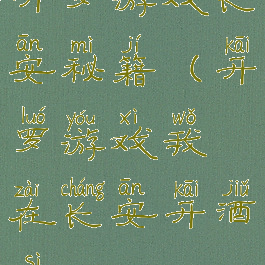 游戏长
ān mì jí kāi
安秘籍(开
luó yóu xì wǒ
罗游戏我
zài cháng ān kāi jiǔ
在长安开酒